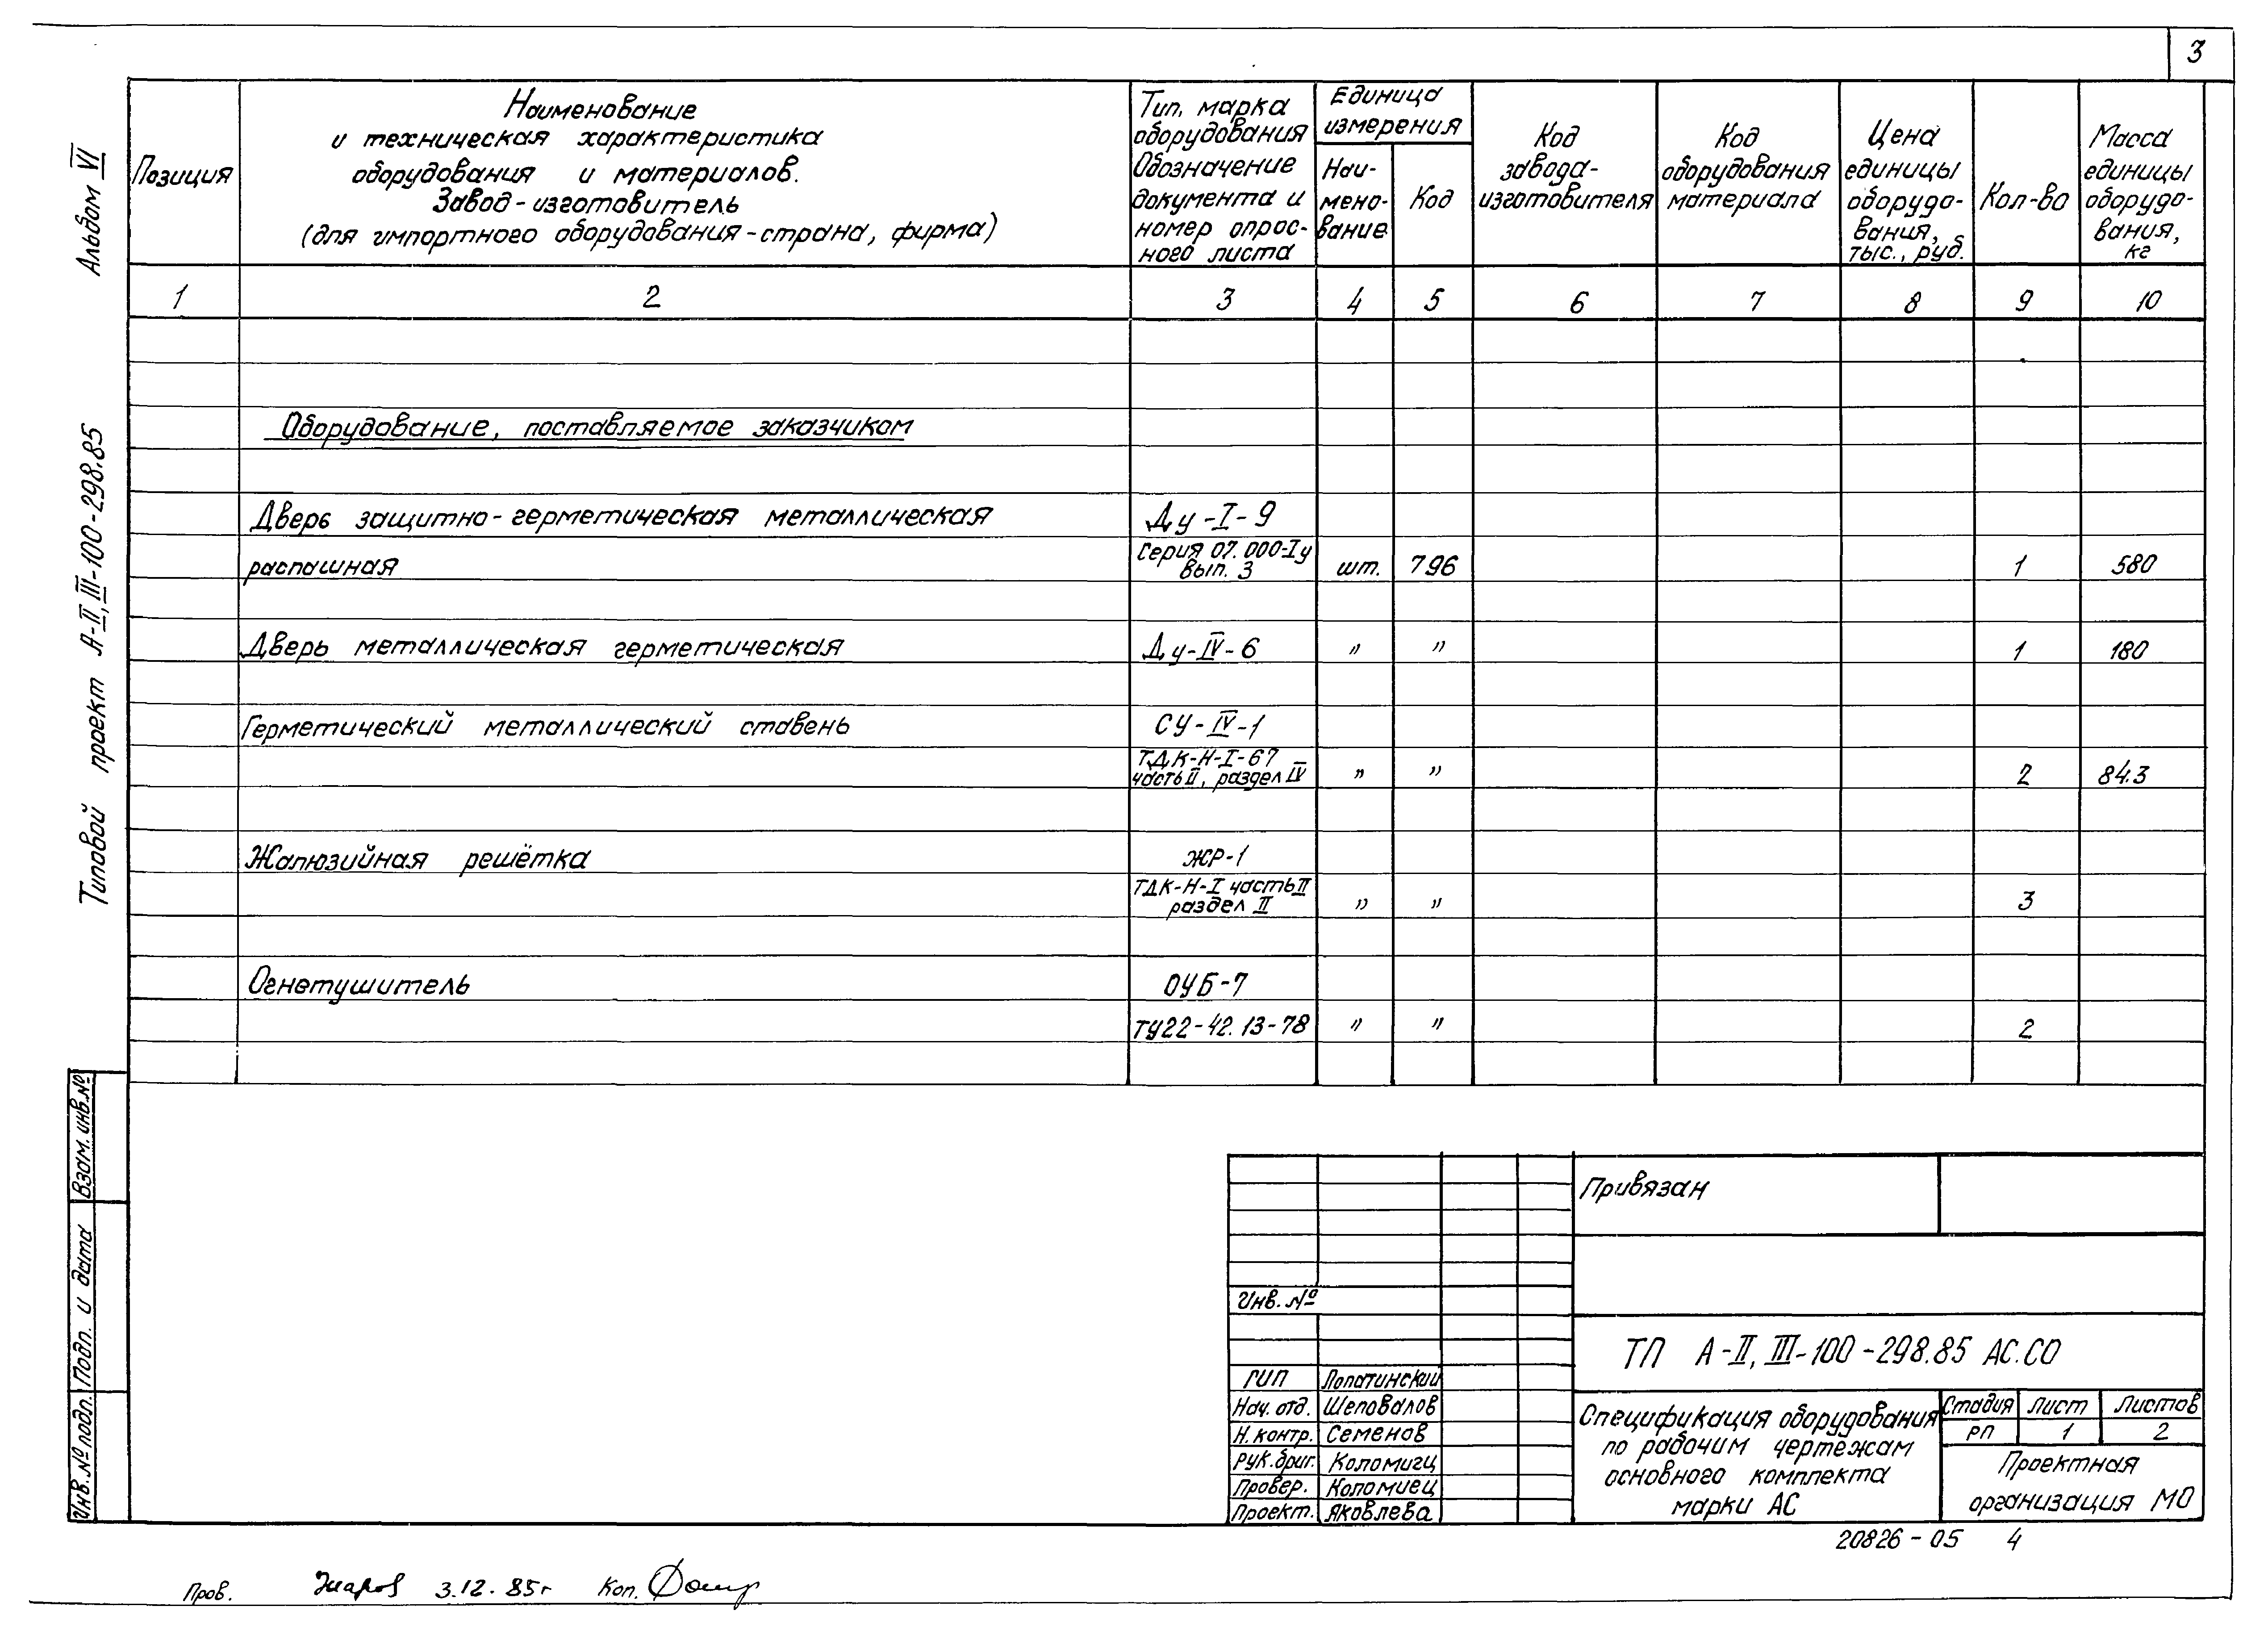 3
Альбом VI
Типовой проект А-II, III-100-298.85
Позиция
Наименование
и техническая характеристика
оборудования и материалов.
Завод-изготовитель
(для импортного оборудования-страна, фирма)
Тип, марка
оборудования
Обозначение
документа и
номер опрос-
ного листа
Единица
измерения
Наи-
мено-
вание
Код
Код
завода-
изготовителя
Код
оборудования
материала
Цена
единицы
оборудо-
вания,
тыс., руб.
Кол-во
Масса
единицы
оборудо-
вания,
кг
1 2 3 4 5 6 7 8 9 10
Оборудование, поставляемое заказчиком
Дверь защитно-герметическая металлическая Ду-I-9
распашная Серия 07.000-Iу
вып. 3 шт. 796 1 580
Дверь металлическая герметическая Ду-IV-6 " " 1 180
Герметический металлический ставень СУ-IV-1
ТДК-Н-I-67
часть II, раздел IV " " 2 84.3
Жалюзийная решётка ЖР-1
ТДК-Н-I часть II
раздел II " " 3
Огнетушитель ОУБ-7
ТУ22-42.13-78 " " 2
Взам. инв.№
Подп. и дата
Инв.№ подл.
Привязан
Инв. №
ТП А-II, III-100-298.85 АС.СО
ГИП Лопатинский
Нач. отд. Шеповалов
Н. контр. Семенов
Рук.бриг. Коломигц
Провер. Коломиец
Проект. Яковлева
Спецификация оборудования
по рабочим чертежам
основного комплекта
марки АС
Стадия Лист Листов
РП 1 2
Проектная
организация МО
20826-05 4
Пров. 3.12.85г Коп.